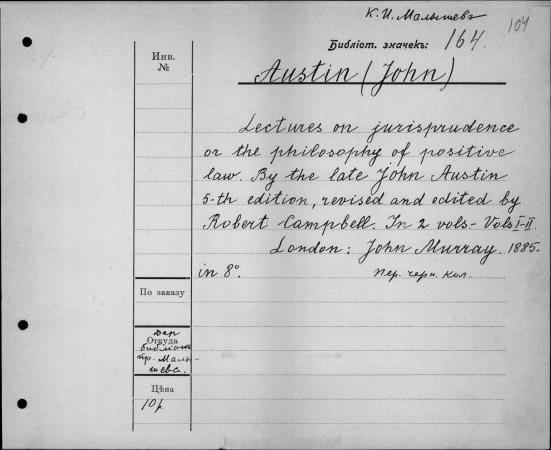 К. И. Малышевъ
104
Библіот. значекъ: 164.
Инв. №
Austin (John)
Lectures on jurisprudence
or the philosophy of positive
law. By the late John Austin
5-th edition, revised and edited by
Robert Campbell. In 2 vols - Vols I-II.
London: John Murray. 1885.
in 8°.
пер. черн. кол.
По заказу
Откуда
Дар
библіот.
пр. Малы-
шева.
Цѣна
10 р.